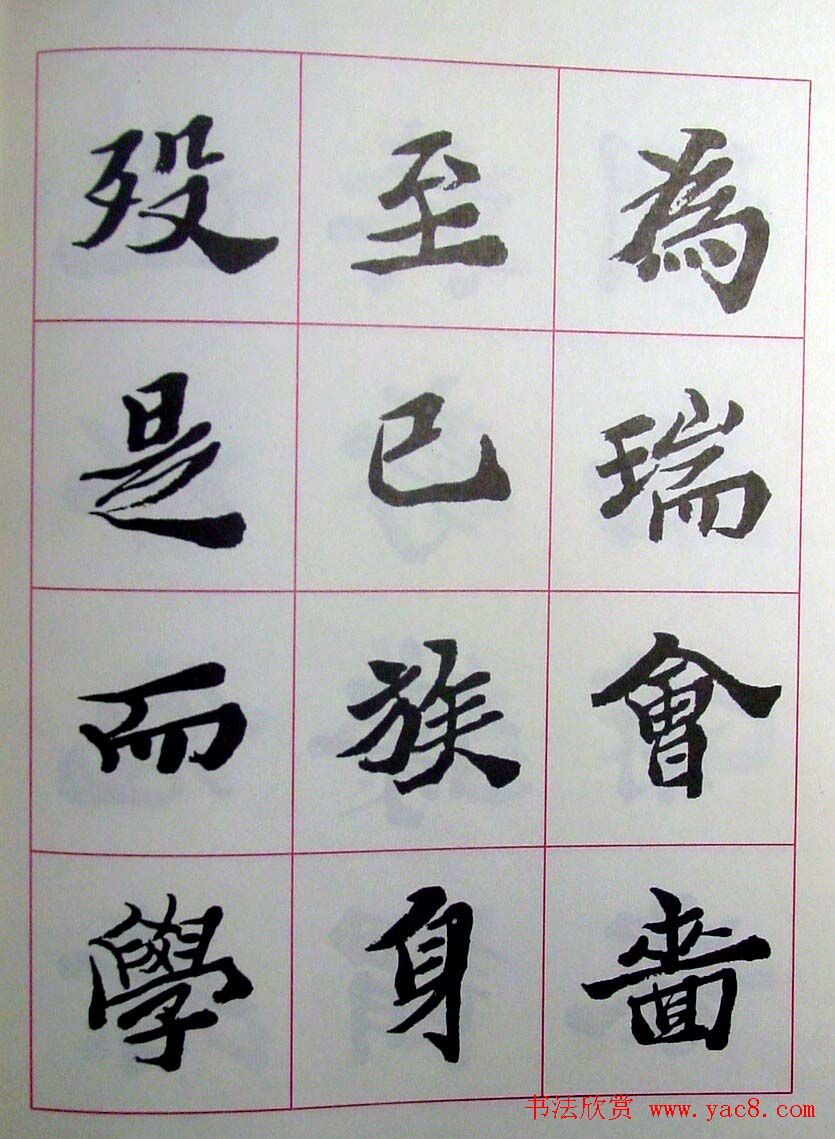 為瑞會嗇
至已族身
歿是而學
书法欣赏 www.yac8.com